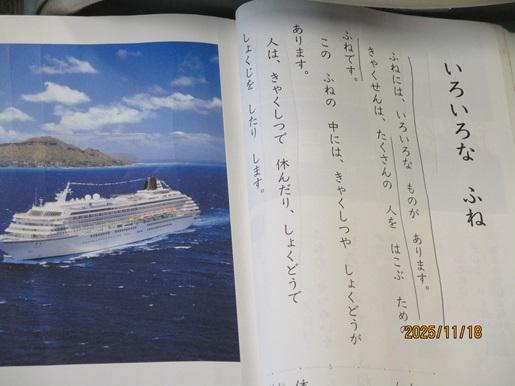 いろいろな ふね
ふねには、いろいろな ものが あります。
きゃくせんは、たくさんの 人を はこぶ ための
ふねです。
この ふねの 中には、きゃくしつや しょくどうが
あります。
人は、きゃくしつで 休んだり、しょくどうで
しょくじを したり します。
2025/11/18